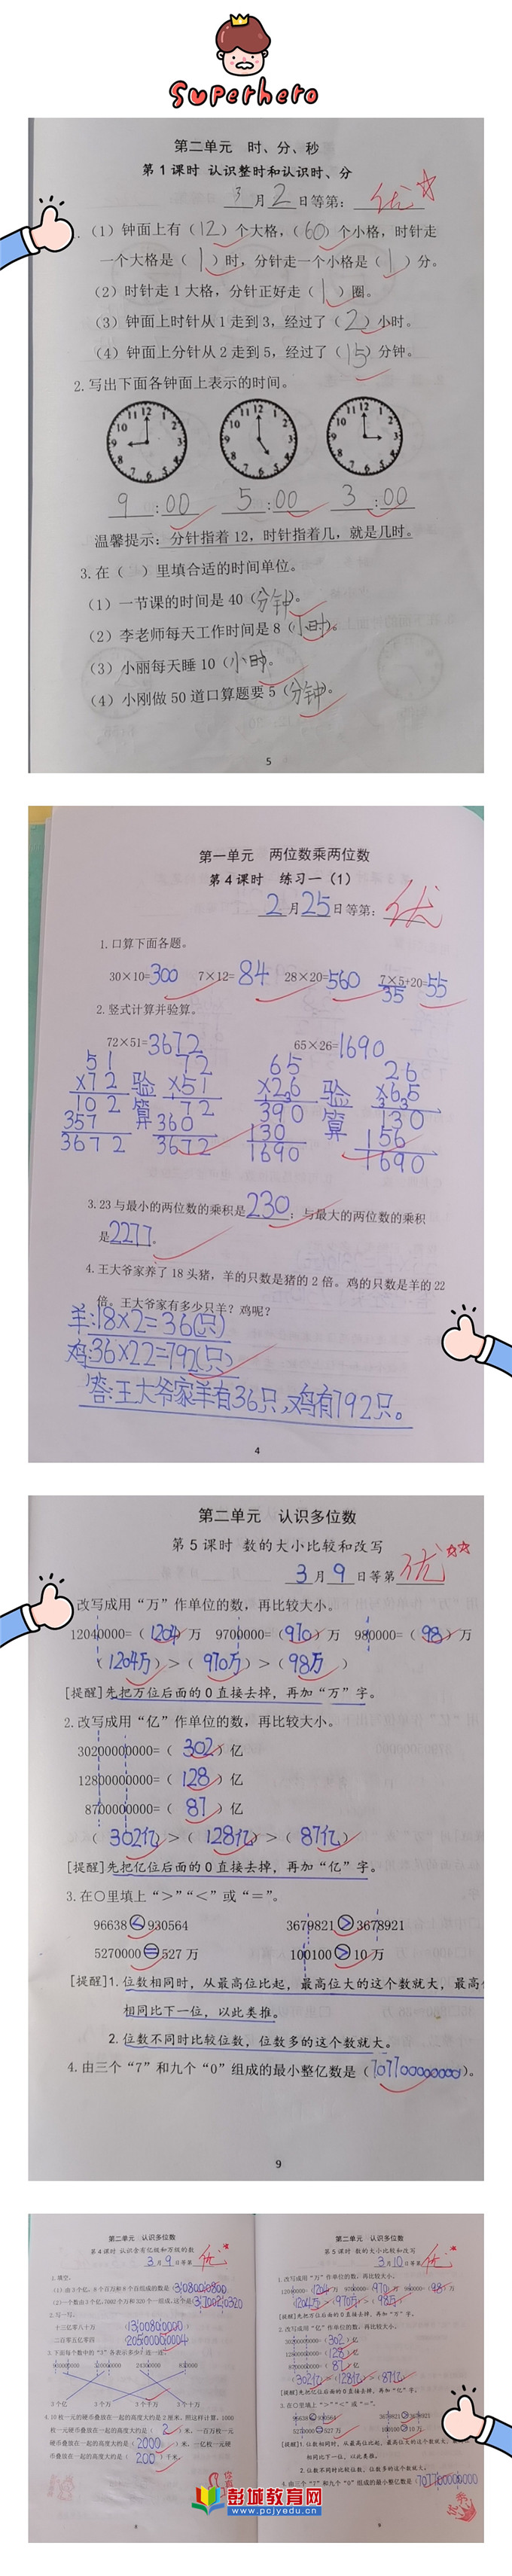 Superhero
第二单元 时、分、秒
第1课时 认识整时和认识时、分
3月2日等第：优
（1）钟面上有（12）个大格，（60）个小格，时针走
一个大格是（1）时，分针走一个小格是（1）分。
（2）时针走1大格，分针正好走（1）圈。
（3）钟面上时针从1走到3，经过了（2）小时。
（4）钟面上分针从2走到5，经过了（15）分钟。
2.写出下面各钟面上表示的时间。
9:00 5:00 3:00
温馨提示：分针指着12，时针指着几，就是几时。
3.在（ ）里填合适的时间单位。
（1）一节课的时间是40（分钟）。
（2）李老师每天工作时间是8（小时）。
（3）小丽每天睡10（小时）。
（4）小刚做50道口算题要5（分钟）。
5
第一单元 两位数乘两位数
第4课时 练习一（1）
2月25日等第：优
1.口算下面各题。
30×10=300 7×12=84 28×20=560 7×5+20=55
35
2.竖式计算并验算。
72×51=3672 65×26=1690
51 72 65 26
×72 验 ×51 ×26 验 ×65
102 算 72 390 算 130
357 360 130 156
3672 3672 1690 1690
3.23与最小的两位数的乘积是230；与最大的两位数的乘积
是2277。
4.王大爷家养了18头猪，羊的只数是猪的2倍。鸡的只数是羊的22
倍。王大爷家有多少只羊？鸡呢？
羊:18×2=36(只)
鸡:36×22=792(只)
答:王大爷家羊有36只,鸡有792只。
4
第二单元 认识多位数
第5课时 数的大小比较和改写
3月9日等第优
改写成用“万”作单位的数，再比较大小。
12040000=（1204）万 9700000=（970）万 980000=（98）万
（1204万）＞（970万）＞（98万）
[提醒]先把万位后面的0直接去掉，再加“万”字。
2.改写成用“亿”作单位的数，再比较大小。
30200000000=（302）亿
12800000000=（128）亿
8700000000=（87）亿
（302亿）＞（128亿）＞（87亿）
[提醒]先把亿位后面的0直接去掉，再加“亿”字。
3.在○里填上“＞”“＜”或“＝”。
96638＜930564 3679821＞3678921
5270000＝527万 100100＞10万
[提醒]1.位数相同时，从最高位比起，最高位大的这个数就大，最高
相同比下一位，以此类推。
2.位数不同时比较位数，位数多的这个数就大。
4.由三个“7”和九个“0”组成的最小整亿数是（707700000000）。
9
第二单元 认识多位数
第4课时 认识含有亿级和万级的数
3月9日等第优
1.填空。
二百零五亿零四
3个亿 3个万 3个千万 3个十万
第二单元 认识多位数
第5课时 数的大小比较和改写
3月10日等第优
1.改写成用“万”作单位的数，再比较大小。
（1204万）＞（970万）＞（98万）
[提醒]先把万位后面的0直接去掉，再加“万”字。
2.改写成用“亿”作单位的数，再比较大小。
（302亿）＞（128亿）＞（87亿）
[提醒]先把亿位后面的0直接去掉，再加“亿”字。
3.在○里填上“＞”“＜”或“＝”。
相同比下一位，以此类推。
2.位数不同时比较位数，位数多的这个数就大。
彭城教育网
www.pcjyedu.cn